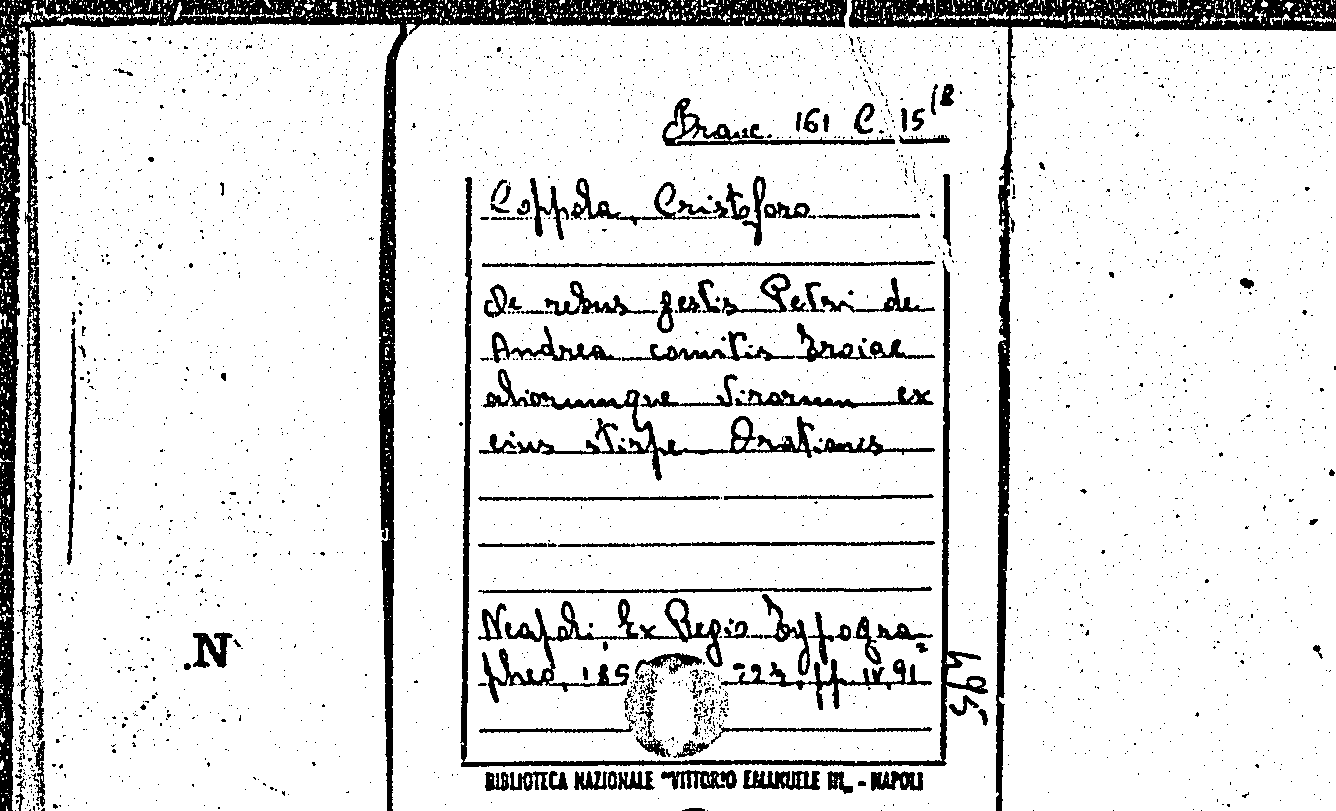 Branc. 161 C. 15 18
Coppola, Cristoforo
De rebus gestis Petri de
Andrea comitis Troiae
aliorumque virorum ex
eius stirpe Orationes
Neapoli, Ex Regio Typogra-
pheo, 185 23, pp. IV, 91
.N
BIBLIOTECA NAZIONALE "VITTORIO EMANUELE III„ - NAPOLI